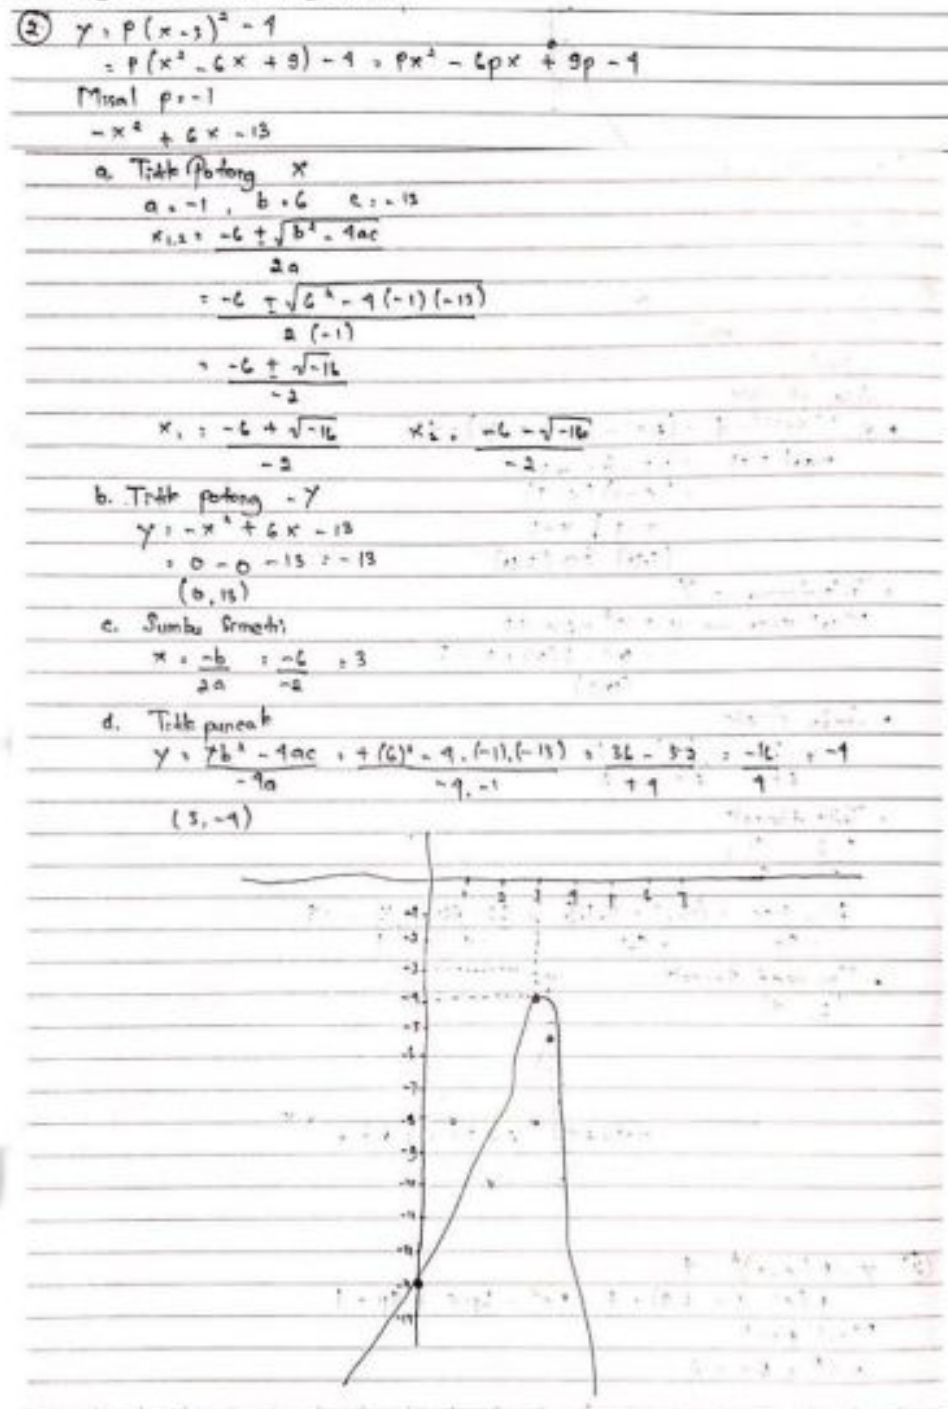 ② y = p(x-3)² - 4
= p(x² - 6x + 9) - 4 = px² - 6px + 9p - 4
Misal p = -1
-x² + 6x - 13
a. Titik Potong x
a = -1, b = 6 c = -13
x₁,₂ = (-6 ± √(b² - 4ac)) / 2a
= (-6 ± √(6² - 4(-1)(-13))) / 2(-1)
= (-6 ± √-16) / -2
x₁ = (-6 + √-16) / -2 x₂ = (-6 - √-16) / -2
b. Titik potong - y
y = -x² + 6x - 13
= 0 - 0 - 13 = -13
(0, 13)
c. Sumbu Simetri
x = -b / 2a = -6 / -2 = 3
d. Titik puncak
y = b² - 4ac / -4a = +(6)² - 4.(-1).(-13) / -4.-1 = 36 - 52 / +4 = -16 / 4 = -4
(3, -4)
1 2 3 4 5 6 7
-1
-2
-3
-4
-5
-6
-7
-8
-9
-10
-11
-12
-13